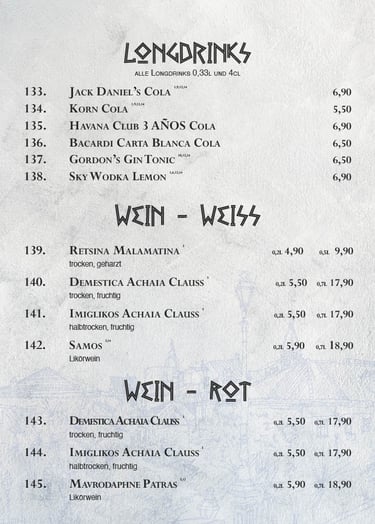 LONGDRINKS
ALLE LONGDRINKS 0,33L UND 4CL
133. JACK DANIEL'S COLA 6,90
134. KORN COLA 5,50
135. HAVANA CLUB 3 AÑOS COLA 6,90
136. BACARDI CARTA BLANCA COLA 6,50
137. GORDON'S GIN TONIC 6,50
138. SKY WODKA LEMON 6,90
WEIN - WEISS
139. RETSINA MALAMATINA 0,2L 4,90 0,5L 9,90
trocken, geharzt
140. DEMESTICA ACHAIA CLAUSS 0,2L 5,50 0,7L 17,90
trocken, fruchtig
141. IMIGLIKOS ACHAIA CLAUSS 0,2L 5,50 0,7L 17,90
halbtrocken, fruchtig
142. SAMOS 0,2L 5,90 0,7L 18,90
Likörwein
WEIN - ROT
143. DEMESTICA ACHAIA CLAUSS 0,2L 5,50 0,7L 17,90
trocken, fruchtig
144. IMIGLIKOS ACHAIA CLAUSS 0,2L 5,50 0,7L 17,90
halbtrocken, fruchtig
145. MAVRODAPHNE PATRAS 0,2L 5,90 0,7L 18,90
Likörwein